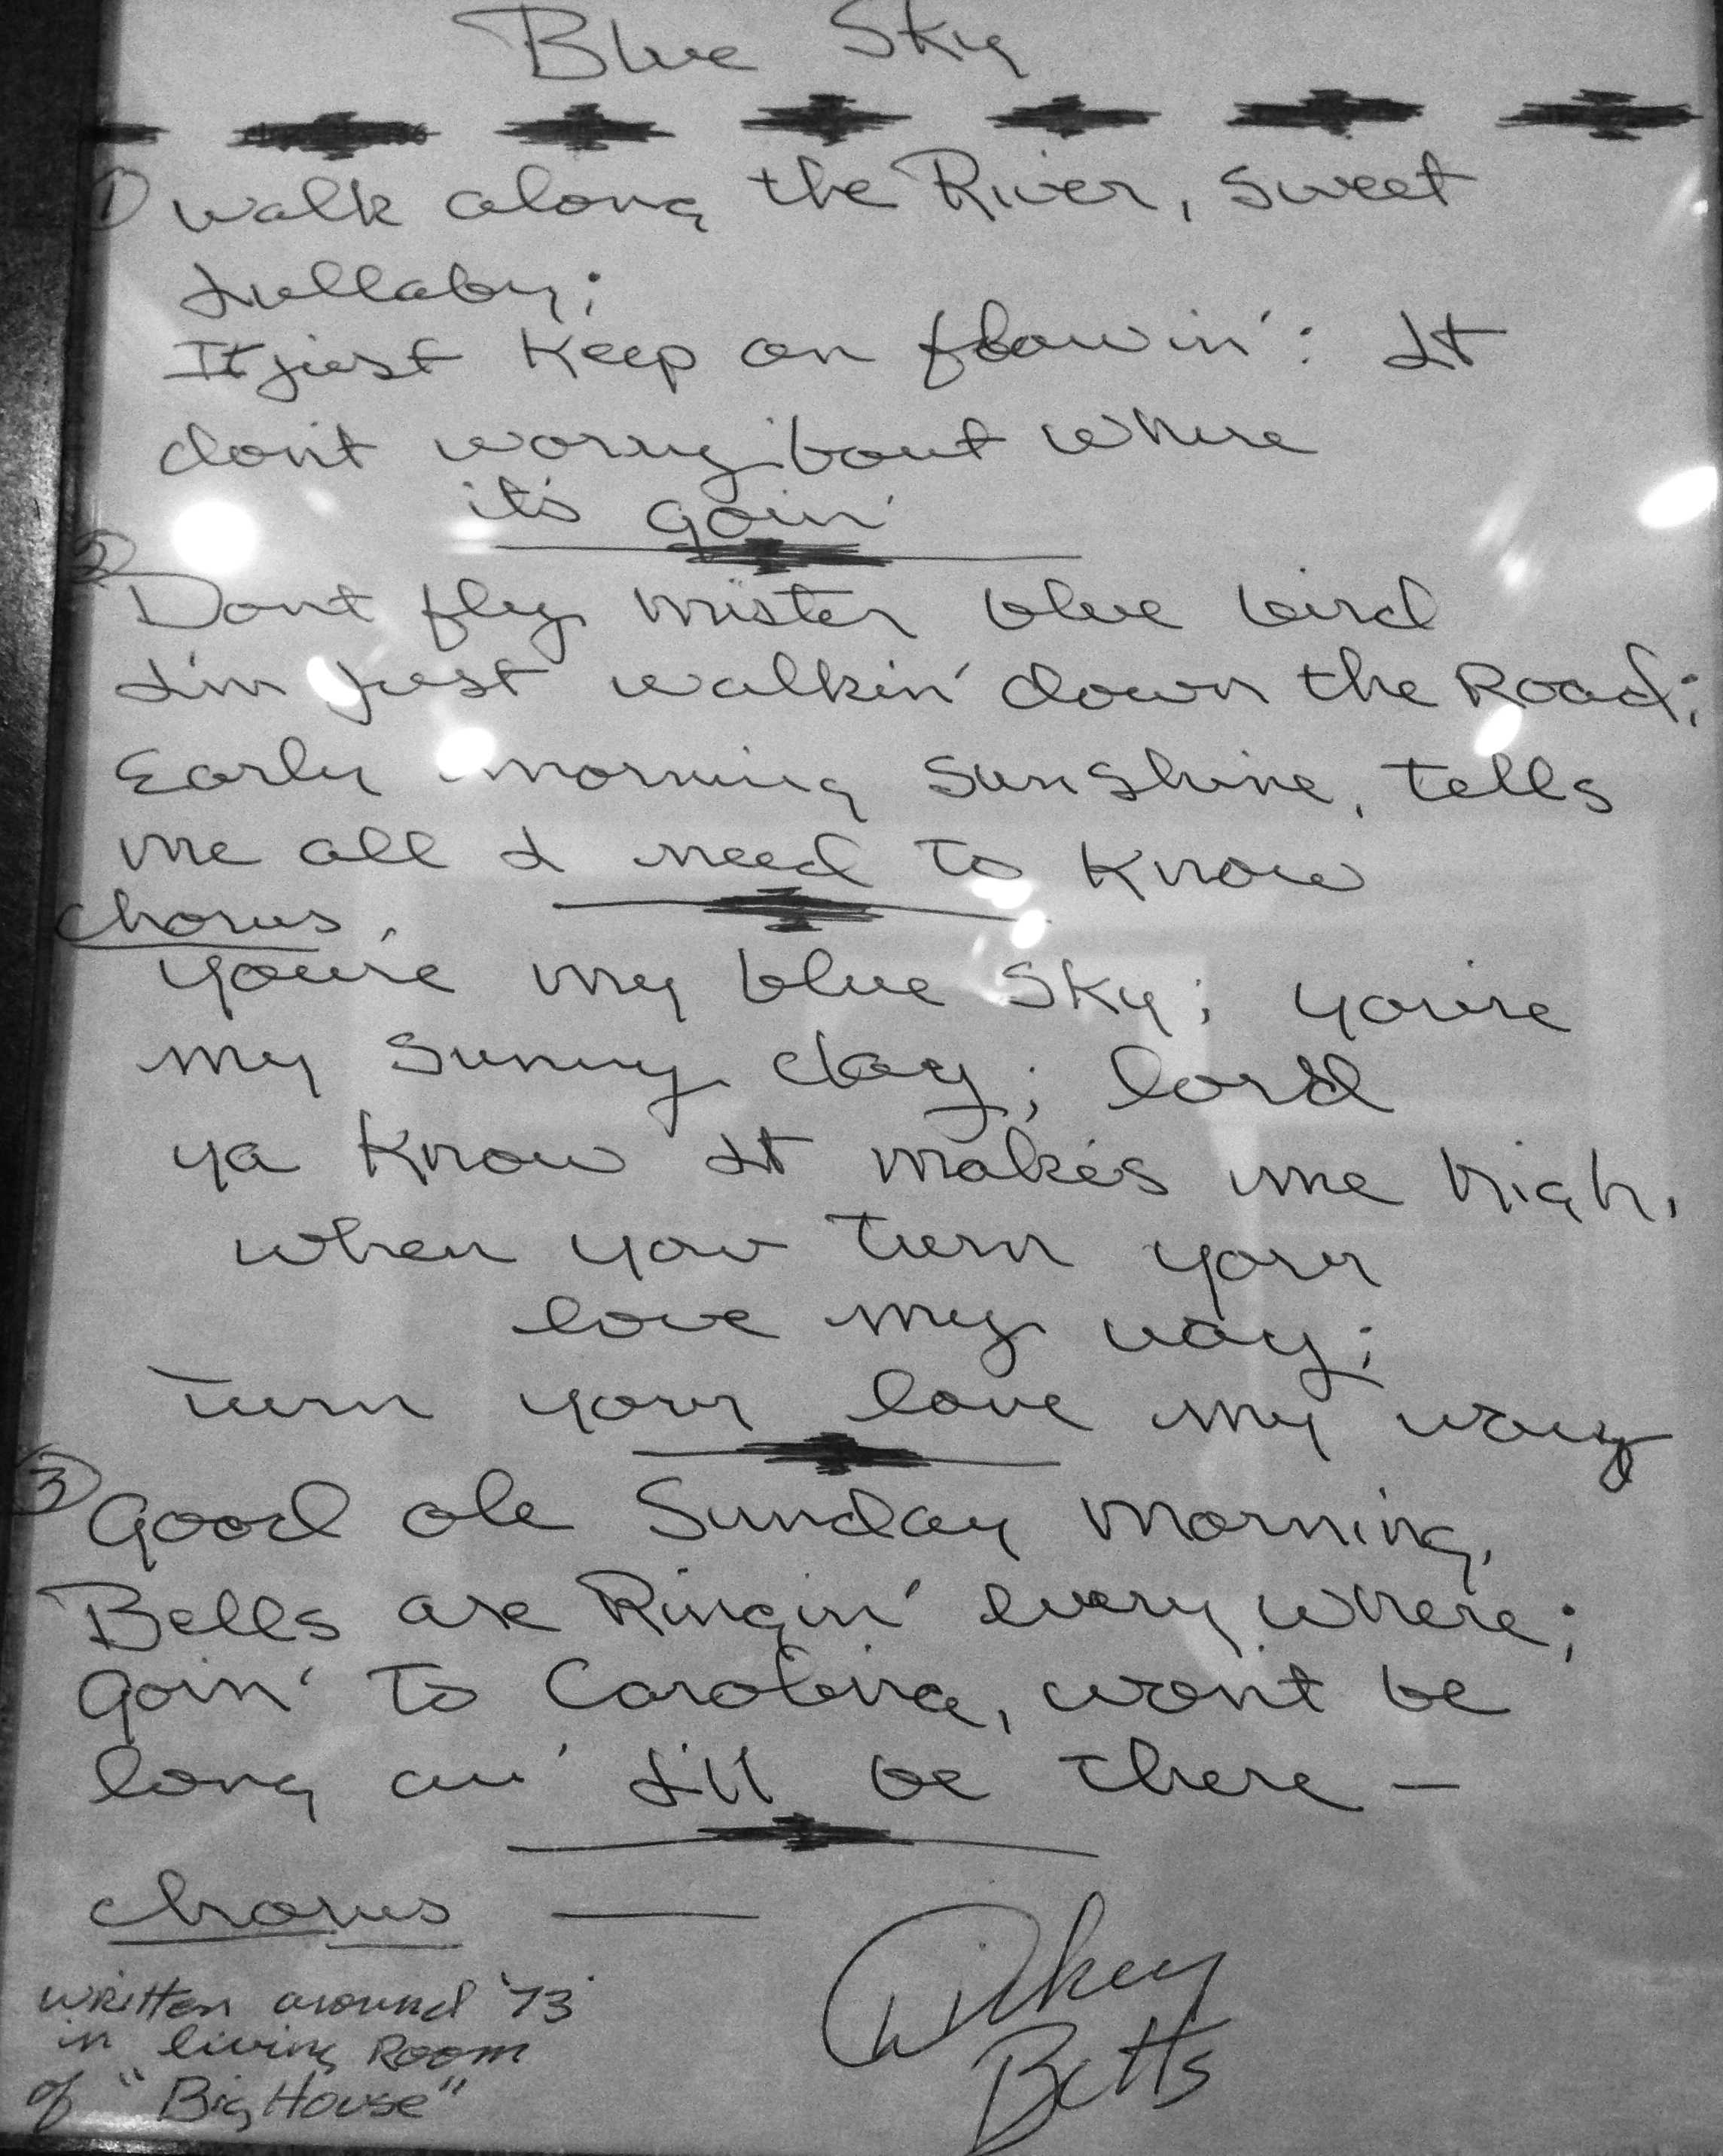 Blue Sky
① walk along the River, sweet
Lullaby;
It just Keep on flowin': It
don't worry 'bout where
it's goin'
② Dont fly mister blue bird
I'm just walkin' down the Road;
Early morning Sunshine, tells
me all I need to Know
Chorus
you're my blue Sky; you're
my sunny day; lord
ya Know It makes me high,
when you turn your
love my way;
Turn your love my way
③ Good ole Sunday morning,
Bells are Ringin' every where;
Goin' To Carolina, won't be
long an' I'll be there —
Chorus —
written around '73
in living Room
of "Big House"
Dickey
Betts